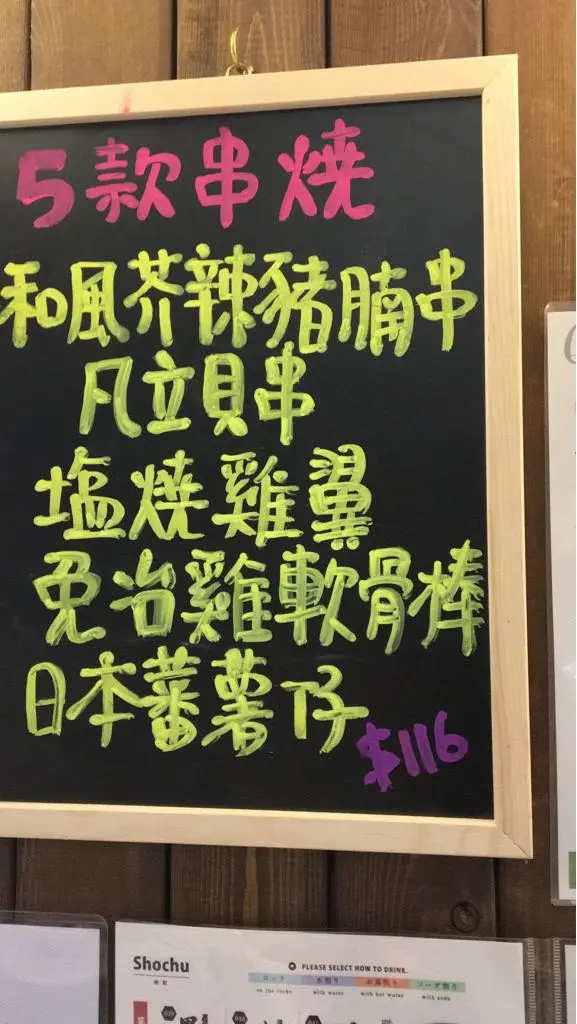 5款串燒
和風芥辣豬腩串
凡立貝串
塩燒雞翼
免治雞軟骨棒
日本蕃薯仔
$116
Shochu
焼酎
PLEASE SELECT HOW TO DRINK.
ロック 水割り お湯割り ソーダ割り
on the rocks with water with hot water with soda